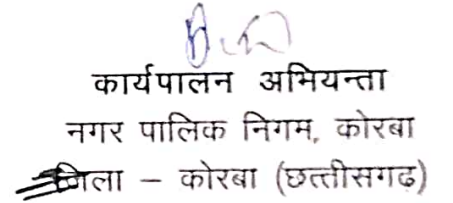 कार्यपालन अभियन्ता
नगर पालिक निगम, कोरबा
जिला – कोरबा (छत्तीसगढ़)